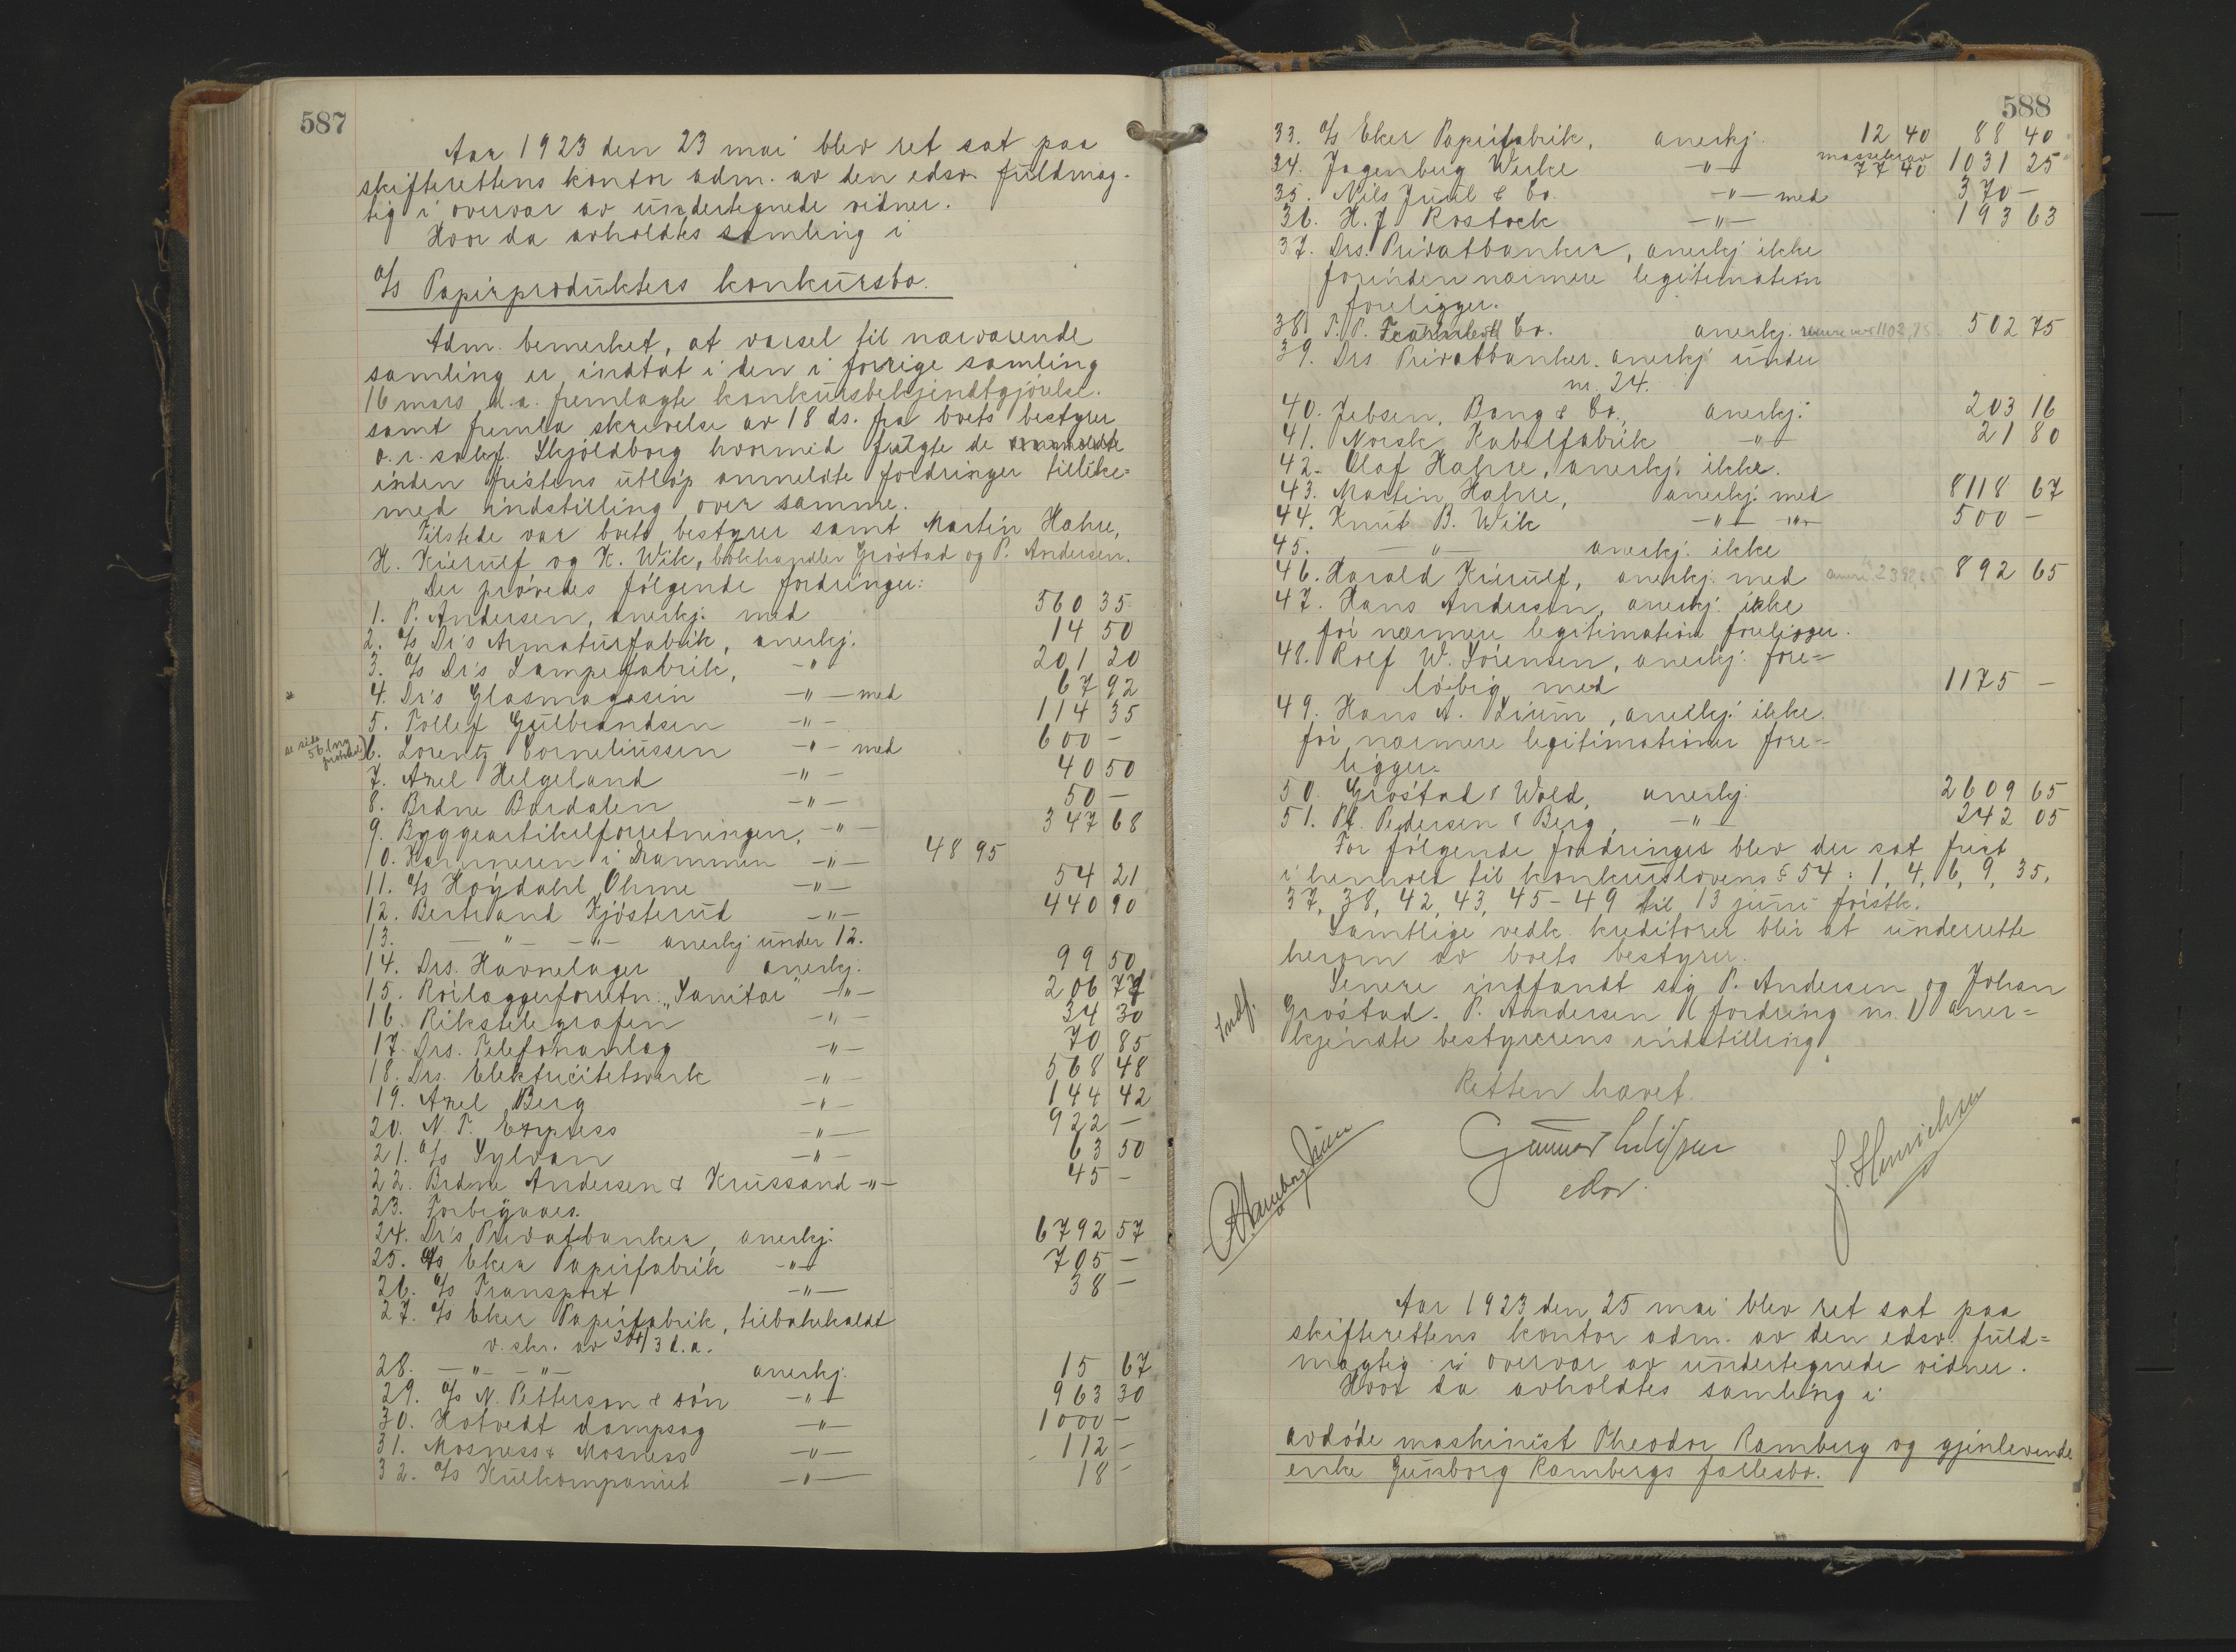 587
Aar 1923 den 23 mai blev ret sat paa
skifterettens kontor adm. av den edsv. fuldmæg-
tig i overvær av undertegnede vidner.
Hvor da avholdtes samling i
A/s Papirprodukters konkursbo.
Adm. bemerket, at varsel til nærværende
samling er indtat i den i forrige samling
16 mars d.a. fremlagte konkursbekjendtgjørelse.
samt fremla skrivelse av 18 ds. fra boets bestyrer
o.r. sakf. Skjöldborg hvormed fulgte de
inden fristens utløp anmeldte fordringer tillike-
med indstilling over samme.
Tilstede var boets bestyrer samt Martin Hahre,
H. Kierulf og K. Wik, bokhandler Gróstad og P. Andersen.
Der prövedes følgende fordringer:
1. P. Andersen, anerkj. med 560 35
2. A/s Dr's Armaturfabrik, anerkj. 14 50
3. A/s Dr's Lampefabrik, -"- 201 20
4. Dr's Glasmagasin -"- med 67 92
5. Tollef Gulbrandsen -"- 114 35
se side 56 (ny protokol) 6. Lorentz Corneliussen -"- med 600 -
7. Axel Helgeland -"- 40 50
8. Brdne Bardalen -"- 50 -
9. Byggeartikelforretningen, -"- 347 68
10. Kæmneren i Drammen -"- 48 95
11. A/s Høydahl Ohme -"- 54 21
12. Bertrand Kjøsterud -"- 440 90
13. -"- -"- anerkj. under 12.
14. Drs. Havnelager anerkj. 99 50
15. Rörlæggerforretn. „Sanitær" -"- 206 77
16. Rikstelegrafen -"- 34 30
17. Drs. Telefonanlæg -"- 70 85
18. Drs. Elektricitetsverk -"- 568 48
19. Axel Berg -"- 144 42
20. N. T. Express -"- 922 -
21. A/s Sylvan -"- 63 50
22. Brdne Andersen & Krussand -"- 45 -
23. Forbigaaes.
24. Dr's Privatbanken, anerkj. 6792 57
25. A/s Eker Papirfabrik -"- 705 -
26. A/s Transport -"- 38 -
27. A/s Eker Papirfabrik, tilbakekaldt
v. skr. av 24/3 d.a.
28. -"- -"- anerkj. 15 67
29. A/s N. Petterson & søn -"- 963 30
30. Hotvedt dampsag -"- 1000 -
31. Mosness & Mosness -"- 112 -
32. A/s Kulkompaniet -"- 18 -
588
33. A/s Eker Papirfabrik, anerkj. 12 40 88 40
34. Jagenberg Werke -"- massekrav 77 40 1031 25
35. Nils Juul & Co. -"- med 370 -
36. H. J. Rostock -"- 193 63
37. Drs. Privatbanken, anerkj. ikke
forinden nærmere legitimation
foreligger.
38. T. P. Co. anerkj. 502 75
39. Drs Privatbanken. anerkj. under
nr. 24.
40. Jebsen, Bang & Co., anerkj. 203 16
41. Norsk Kabelfabrik -"- 21 80
42. Olaf Hahre, anerkj. ikke.
43. Martin Hahre, anerkj. med 8118 67
44. Knut B. Wik -"- -"- 500 -
45. -"- anerkj. ikke
46. Harald Kierulf, anerkj. med 892 65
47. Hans Andersen, anerkj. ikke
før nærmere legitimation foreligger.
48. Rolf W. Sörensen, anerkj. fore-
løbig med 1175 -
49. Hans A. Lium, anerkj. ikke
før nærmere legitimationer fore-
ligger.
50. Gróstad & Wold, anerkj. 2609 65
51. Pt. Pedersen & Berg, -"- 242 05
For følgende fordringer blev der sat frist
i henhold til konkurslovens § 54: 1, 4, 6, 9, 35,
37, 38, 42, 43, 45-49 til 13 juni førstk.
Samtlige vedk. kreditorer blir at underrette
herom av boets bestyrer.
Senere indfandt sig P. Andersen og Johan
Indf. Gróstad. P. Andersen (fordring nr. 1) aner-
kjendte bestyrerens indstilling.
Retten hævet.
Gunnar
edsv.
J. Henrichsen
Aar 1923 den 25 mai blev ret sat paa
skifterettens kontor adm. av den edsv. fuld-
mægtig i overvær av undertegnede vidner.
Hvor da avholdtes samling i
avdøde maskinist Theodor Ramberg og gjenlevende
enke Gunborg Rambergs fællesbo.